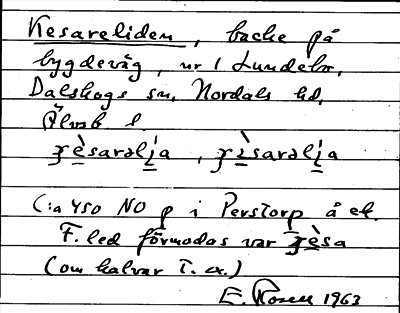 Kesareliden, backe på
bygdeväg, nr 1 Lundebo,
Dalskogs sn, Nordals hd,
Älvsb l.
ɟèsaralia, ɟìsaralia
C:a 450 NO p i Perstorp å ek.
F. led förmodas var ɟèsa
(om halvar T. a.)
E. Rosell 1963